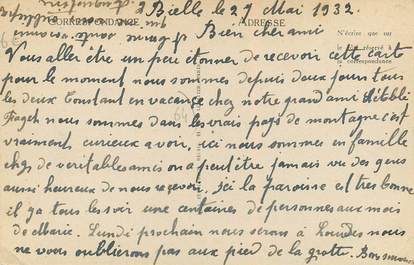 CORRESPONDANCE
ADRESSE
Bielle le 27 Mai 1932.
Bien cher ami
N'écrire que
côté réservé à
la correspondance
Vous allez être un peu étonner de recevoir cette carte
pour le moment nous sommes depuis deux jours tous
les deux Constant en vacance chez notre grand ami l'abbé
nous sommes dans les vrais pays de montagne c'est
vraiment curieux a voir, ici nous sommes en famille
chez de veritables amis on a peut être jamais vu des gens
aussi heureux de nous recevoir. Ici la paroisse est tres bonne
il y a tous les soir une centaines de personnes aux mois
de Marie. Lundi prochain nous serons à Lourdes nous
ne vous oublierons pas aux pied de la grotte. Bon